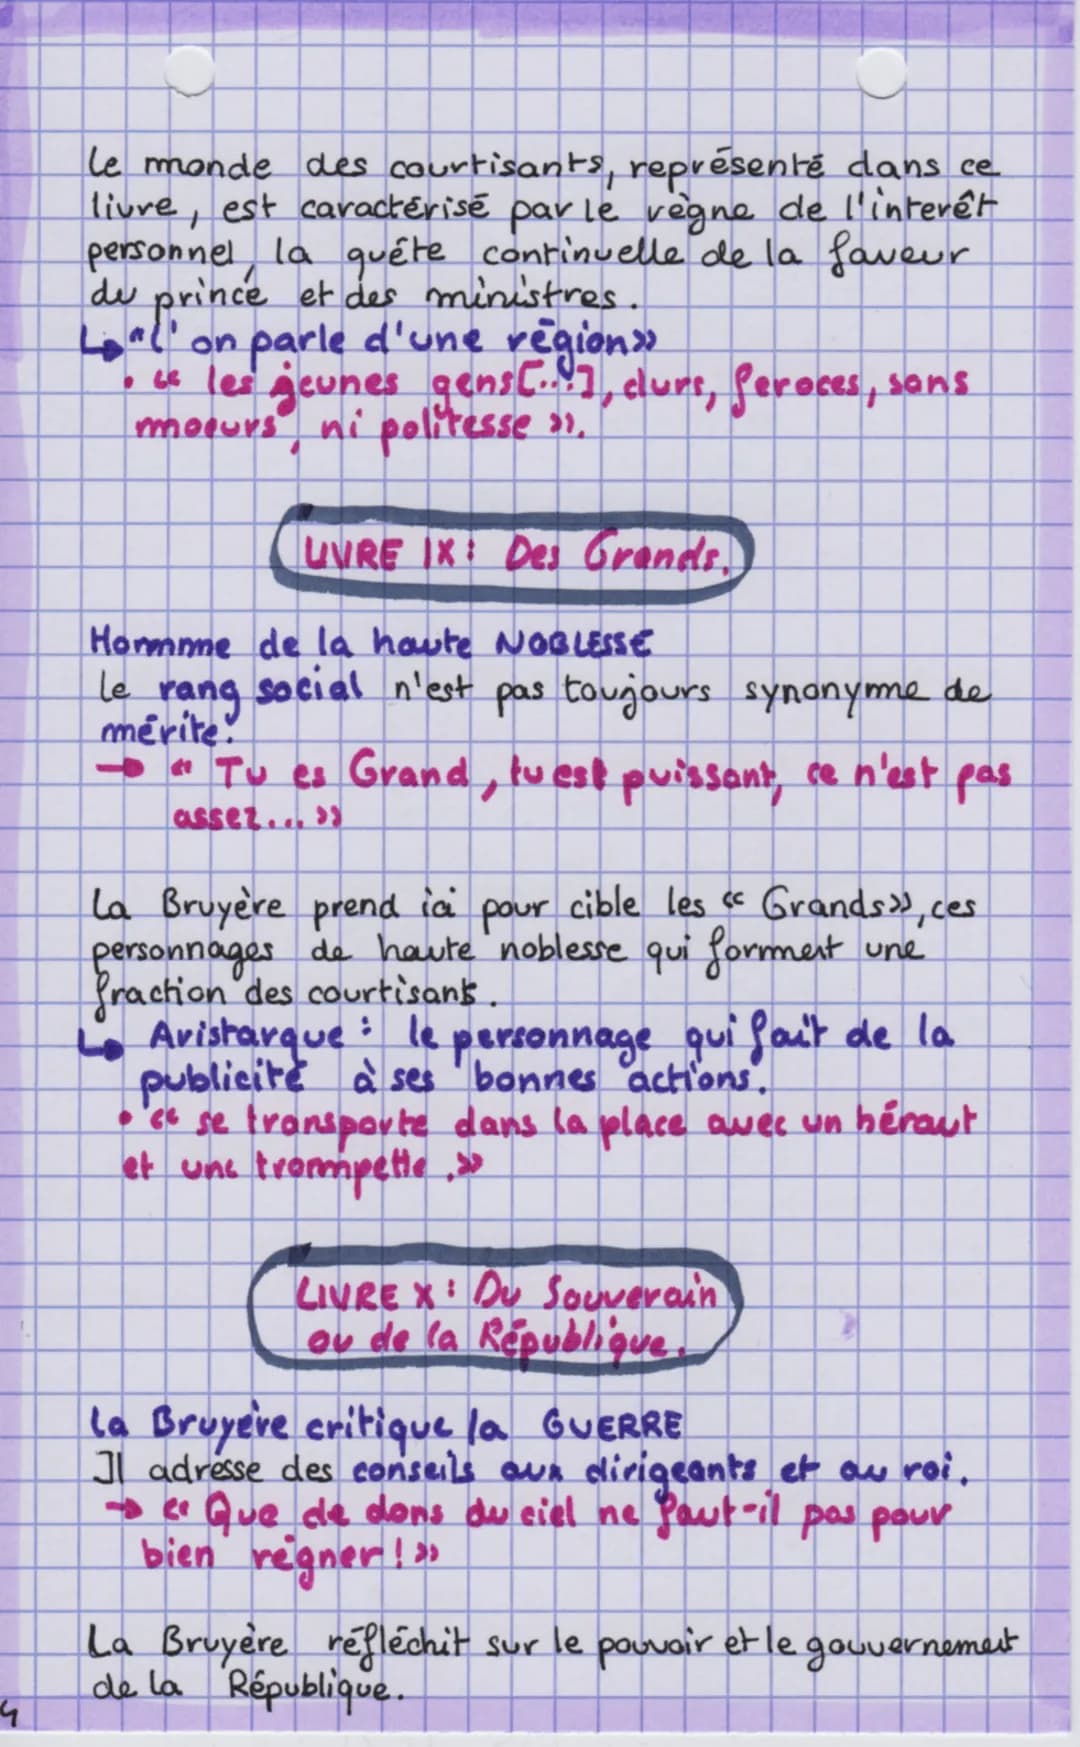 Le monde des courtisants, représenté dans ce
livre, est caractérisé par le règne de l'interêt
personnel, la quête continuelle de la faveur
du prince et des ministres.
↳ "l'on parle d'une région»
• « les jeunes gens[...], durs, feroces, sans
moeurs, ni politesse ».
LIVRE IX : Des Grands.
Homme de la haute NOBLESSE
Le rang social n'est pas toujours synonyme de
mérite.
→ « Tu es Grand, tu est puissant, ce n'est pas
assez... »
La Bruyère prend ici pour cible les « Grands», ces
personnages de haute noblesse qui forment une
fraction des courtisans.
↳ Aristarque : le personnage qui fait de la
publicité à ses bonnes actions.
• « se transporte dans la place avec un héraut
et une trompette .»
LIVRE X : Du Souverain
ou de la République.
La Bruyère critique la GUERRE
Il adresse des conseils aux dirigeants et au roi.
→ « Que de dons du ciel ne faut-il pas pour
bien régner ! »
La Bruyère réfléchit sur le pouvoir et le gouvernement
de la République.
4